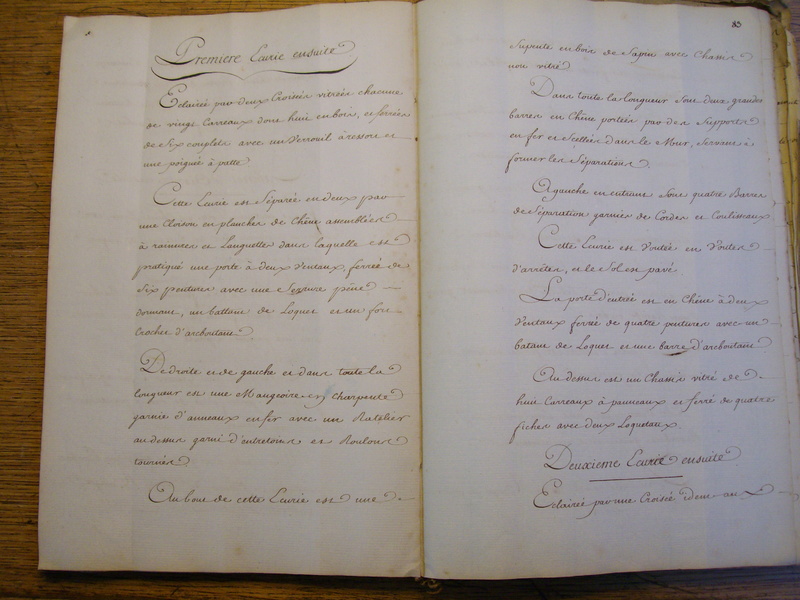 Premiere Ecurie ensuite
Eclairée par deux Croisées vitrées chacune
de vingt Carreaux dont huit en bois, et ferrées
de Six couplets avec un Verrouil à ressore et
une poignée à patte.
Cette Ecurie est Séparée en deux par
une Cloison en planches de Chêne assemblées
à rainures et Languettes dans laquelle est
pratiqué une porte à deux Ventaux, ferrée de
Six pentures avec une Serrure pêne
dormant, un battant de Loquet et un fort
Crochet d'arcboutant
De droite et de gauche et dans toute la
longueur est une Mangeoire en charpente
garnie d'anneaux en fer avec un Ratelier
au dessus garni d'entretoises et Roulons
tournés
Au bout de cette Ecurie est une
83
Supente en bois de Sapin avec Chassis
non vitré
Dans toute la longueur sont deux grandes
barres en Chêne portées par des Supports
en fer et Scellés dans le Mur, Servant à
former les Séparations.
A gauche en entrant Sont quatre Barres
de Séparation garnies de Cordes et Coulisseaux
Cette Ecurie est Voutée en Voutes
d'arrêtes, et le Sol est pavé
La porte d'entrée est en Chêne à deux
Ventaux ferrée de quatre pentures avec un
batant de Loquet et une barre d'arcboutant
Au dessus est un Chassis vitré de
huit Carreaux à panneaux et ferré de quatre
fiches avec deux Loqueteaux.
Deuxieme Ecurie ensuite
Eclairée par une Croisée idem aux